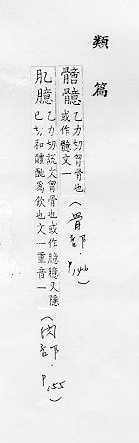 類篇
臆 乙力切胷骨也
或作 文一 (骨部. P.146)
肊臆 乙力切說文胷骨也或作臆 又隱
已切和醴酏為飲也文一重音一 (肉部. P.155)